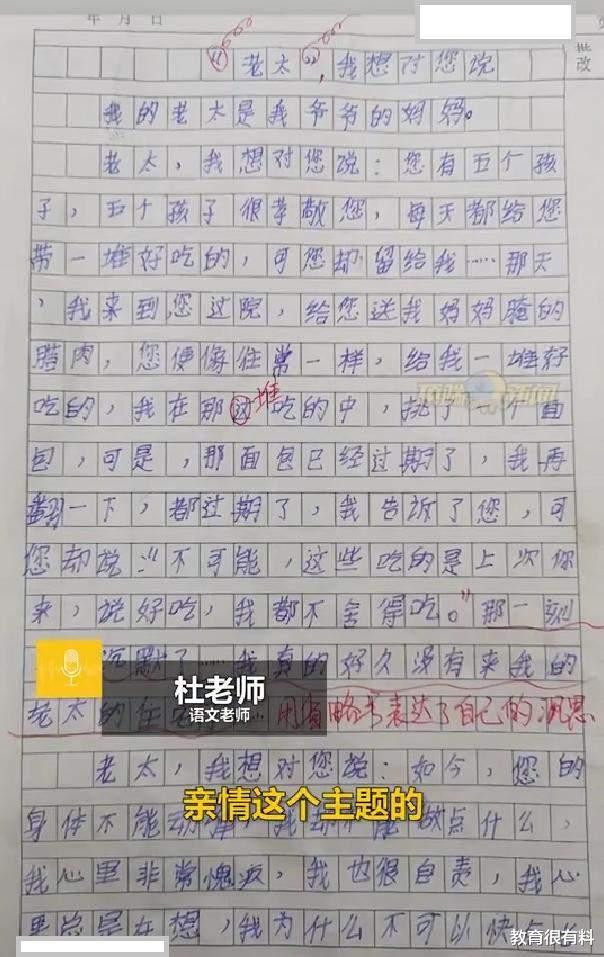 年 月 日
批改
老太，我想对您说
我的老太是我爷爷的妈妈。
老太，我想对您说：您有五个孩
子，五个孩子很孝敬您，每天都给您
带一堆好吃的，可您却留给我……那天
，我来到您过院，给您送我妈妈腌的
腊肉，您便像往常一样，给我一堆好
吃的，我在那堆吃的中，挑了一个面
包，可是，那面包已经过期了，我再
翻一下，都过期了，我告诉了您，可
您却说：“不可能，这些吃的是上次你
来，说好吃，我都不舍得吃。”那一刻
沉默了……我真的好久没有来我的
老太的住
用省略号表达了自己的沉思
杜老师
语文老师
老太，我想对您说：如今，您的
亲情这个主题的
身体不能 我却 做点什么，
我心里非常愧疚，我也很自责，我心
里总是在想，我为什么不可以快
教育很有料